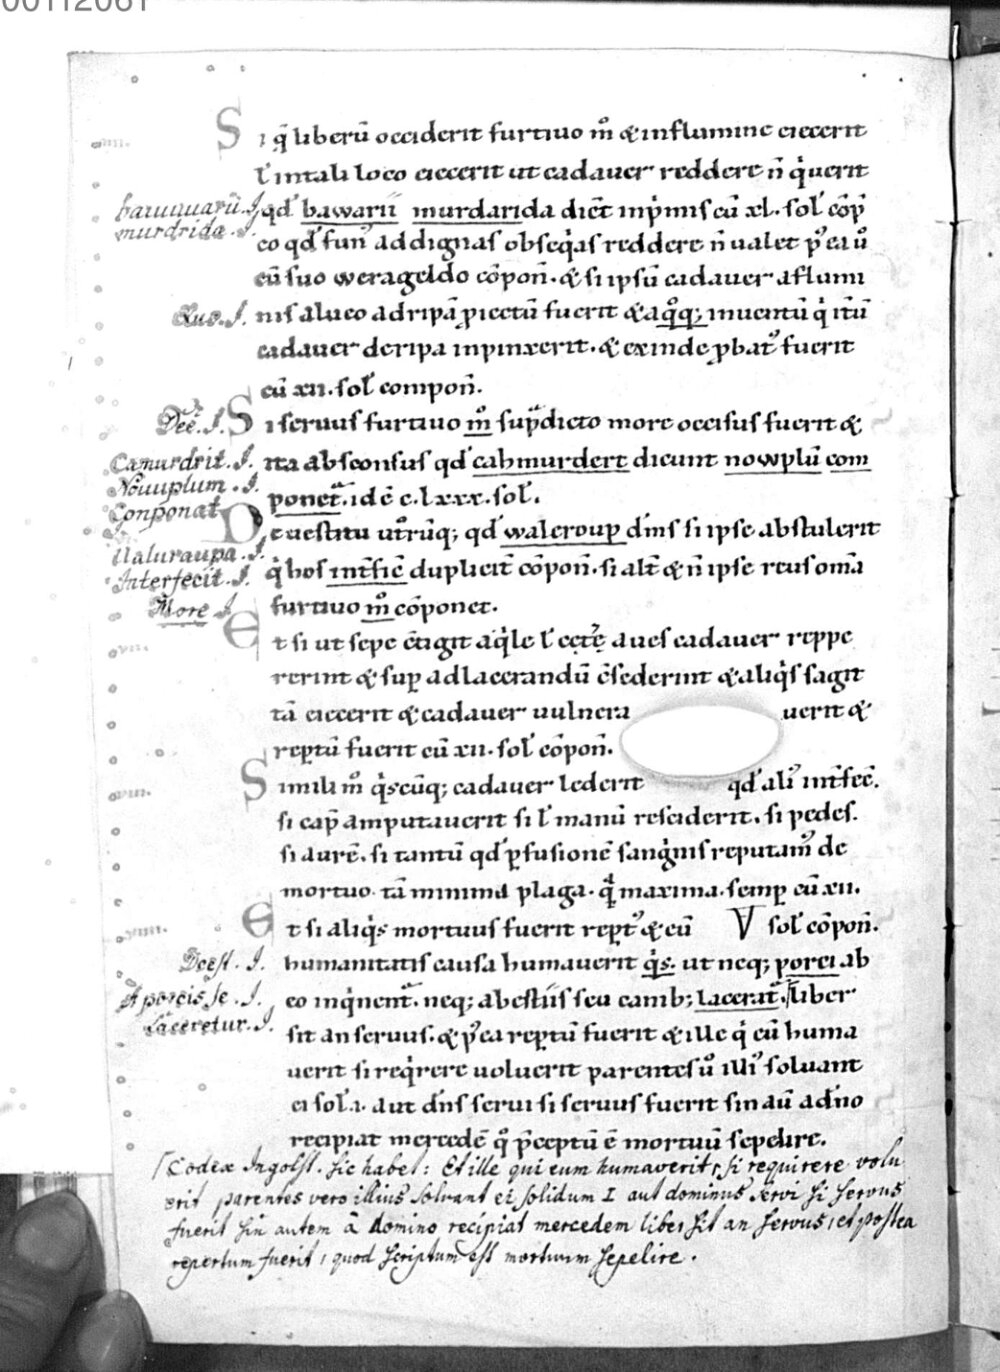 00112061
Si q̄ liberū occiderit furtiuo m̊ & influmine eiecerit
ł intali loco eiecerit ut cadauer reddere n̄ q̇uerit
qd̄ bawarii murdarida dicit̄ inp̄mis cū xl. sol̄ cōp̄
eo qd̄ fun̄ addignas obseq̇as reddere n̄ ualet p̄ ea ů
cū suo werageldo cōpon̄. & si ipsū cadauer aflumi
nis alueo adripā ꝓiectū fuerit & aq̊q; inuentū q̇ itū
cadauer deripa inpinxerit. & exinde ꝓbat᷒ fuerit
cū xii. sol̄ compon̄.
Si seruus furtiuo m̊ sup̄dicto more occisus fuerit &
ita absconsus qd̄ cahmurdert dicunt nowplū com
ponet᷒. id ē c.lxxx. sol̄.
De uestitu utrūq; qd̄ waleroup dīns si ipse abstulerit
q̇ hos int̄fic̄ duplicit̄ cōpon̄. si alt̄ & n̄ ipse reus om̄a
furtiuo m̊ cōponet.
Et si ut sepe c̄tigit aq̇le ł cęt̄ę aues cadauer reppe
rerint & sup̱ adlacerandū c̄sederint & aliq̇s sagit
tā eiecerit & cadauer uulnera uerit &
rep̱tū fuerit cū xii. sol̄ cōpon̄.
Simili m̊ q̇scūq; cadauer lederit qd̄ ali᷒ int̄fec̄.
si cap̄ amputauerit si ł manū resciderit. si pedes.
si aurē. si tantū qd̄ p̱fusionē sanġnis reputam᷒ de
mortuo. tā minima plaga. q̄ maxima. semp̱ cū xii.
Et si aliq̇s mortuus fuerit rep̱t᷒ & eū V sol̄ cōpon̄.
humanitatis causa humauerit q̇s. ut neq; porci ab
eo inq̇nent᷒. neq; abestiis seu camb; lacerat᷒. liber
sit an seruus. & p̄ ea rep̱tū fuerit & ille q̇ eū huma
uerit si req̇rere uoluerit parentes ů illi᷒ soluant
ei sol̄.i. aut dīns serui si seruus fuerit sin aū adn̄o
recipiat mercedē q̊ p̄ceptū ē mortuū sepelire.
bauuuarū. J.
murdrida. J.
Quo. J.
Deē. J.
Camurdrit. J.
Nouuplum. J.
Conponat
Ualuraupa. J.
Interfecit. J.
More J.
vii.
viii.
viiii.
Deest. J.
A porcis se. J.
Laceretur. J.
Codex Ingolst. sic habet: Et ille qui eum humaverit, si requirere volu
erit parentes vero illius solvant ei solidum I aut dominus servi si servus
fuerit sin autem à domino recipiat mercedem liber sit an servus, et postea
repertum fuerit, quod scriptum est mortuum sepelire.